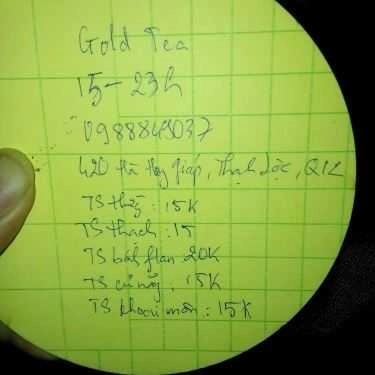 Gold Tea
15 - 23h
0988845037
420 Hà Huy Giáp, Thạnh Lộc, Q12
TS : 15K
TS thạch : 15
TS bánh flan 20K
TS củ năng : 15K
TS khoai môn : 15K